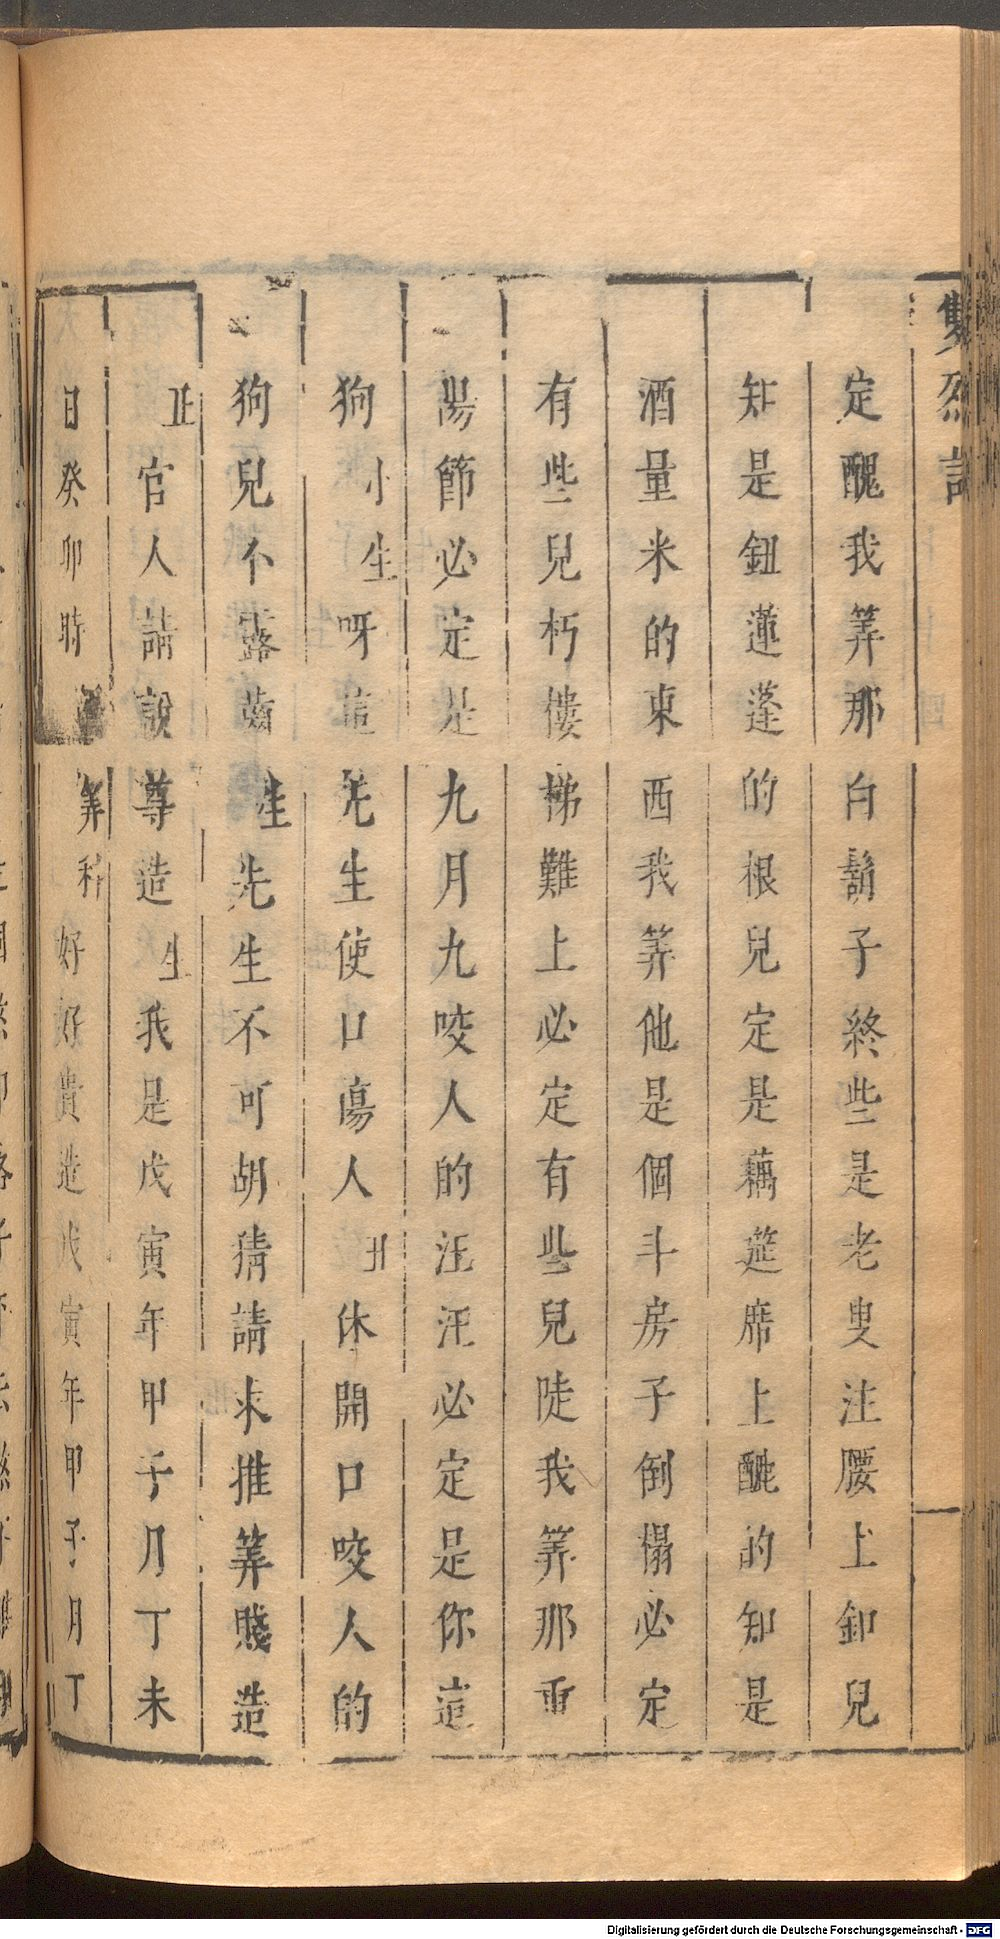 雙烈記
定醜我筭那白鬍子終些是老叟注腰上釦兒
知是鈕蓮蓬的根兒定是藕筵席上醜的知是
酒量米的東西我筭他是個斗房子倒榻必定
有些兒朽樓梯難上必定有些兒陡我筭那重
陽節必定是九月九咬人的汪汪必定是你這
狗小生呀這先生使口傷人丑休開口咬人的
狗兒不露齒生先生不可胡猜請求推筭賤造
丑官人請說尊造生我是戊寅年甲子月丁未
日癸卯時筭科好好貴造戊寅年甲子月丁
Digitalisierung gefördert durch die Deutsche Forschungsgemeinschaft - DFG